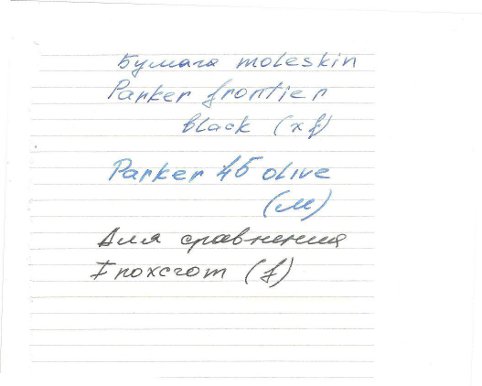 Бумага moleskin
Parker frontier
black (xf)
Parker 45 olive
(M)
Для сравнения
Inoxcrom (f)